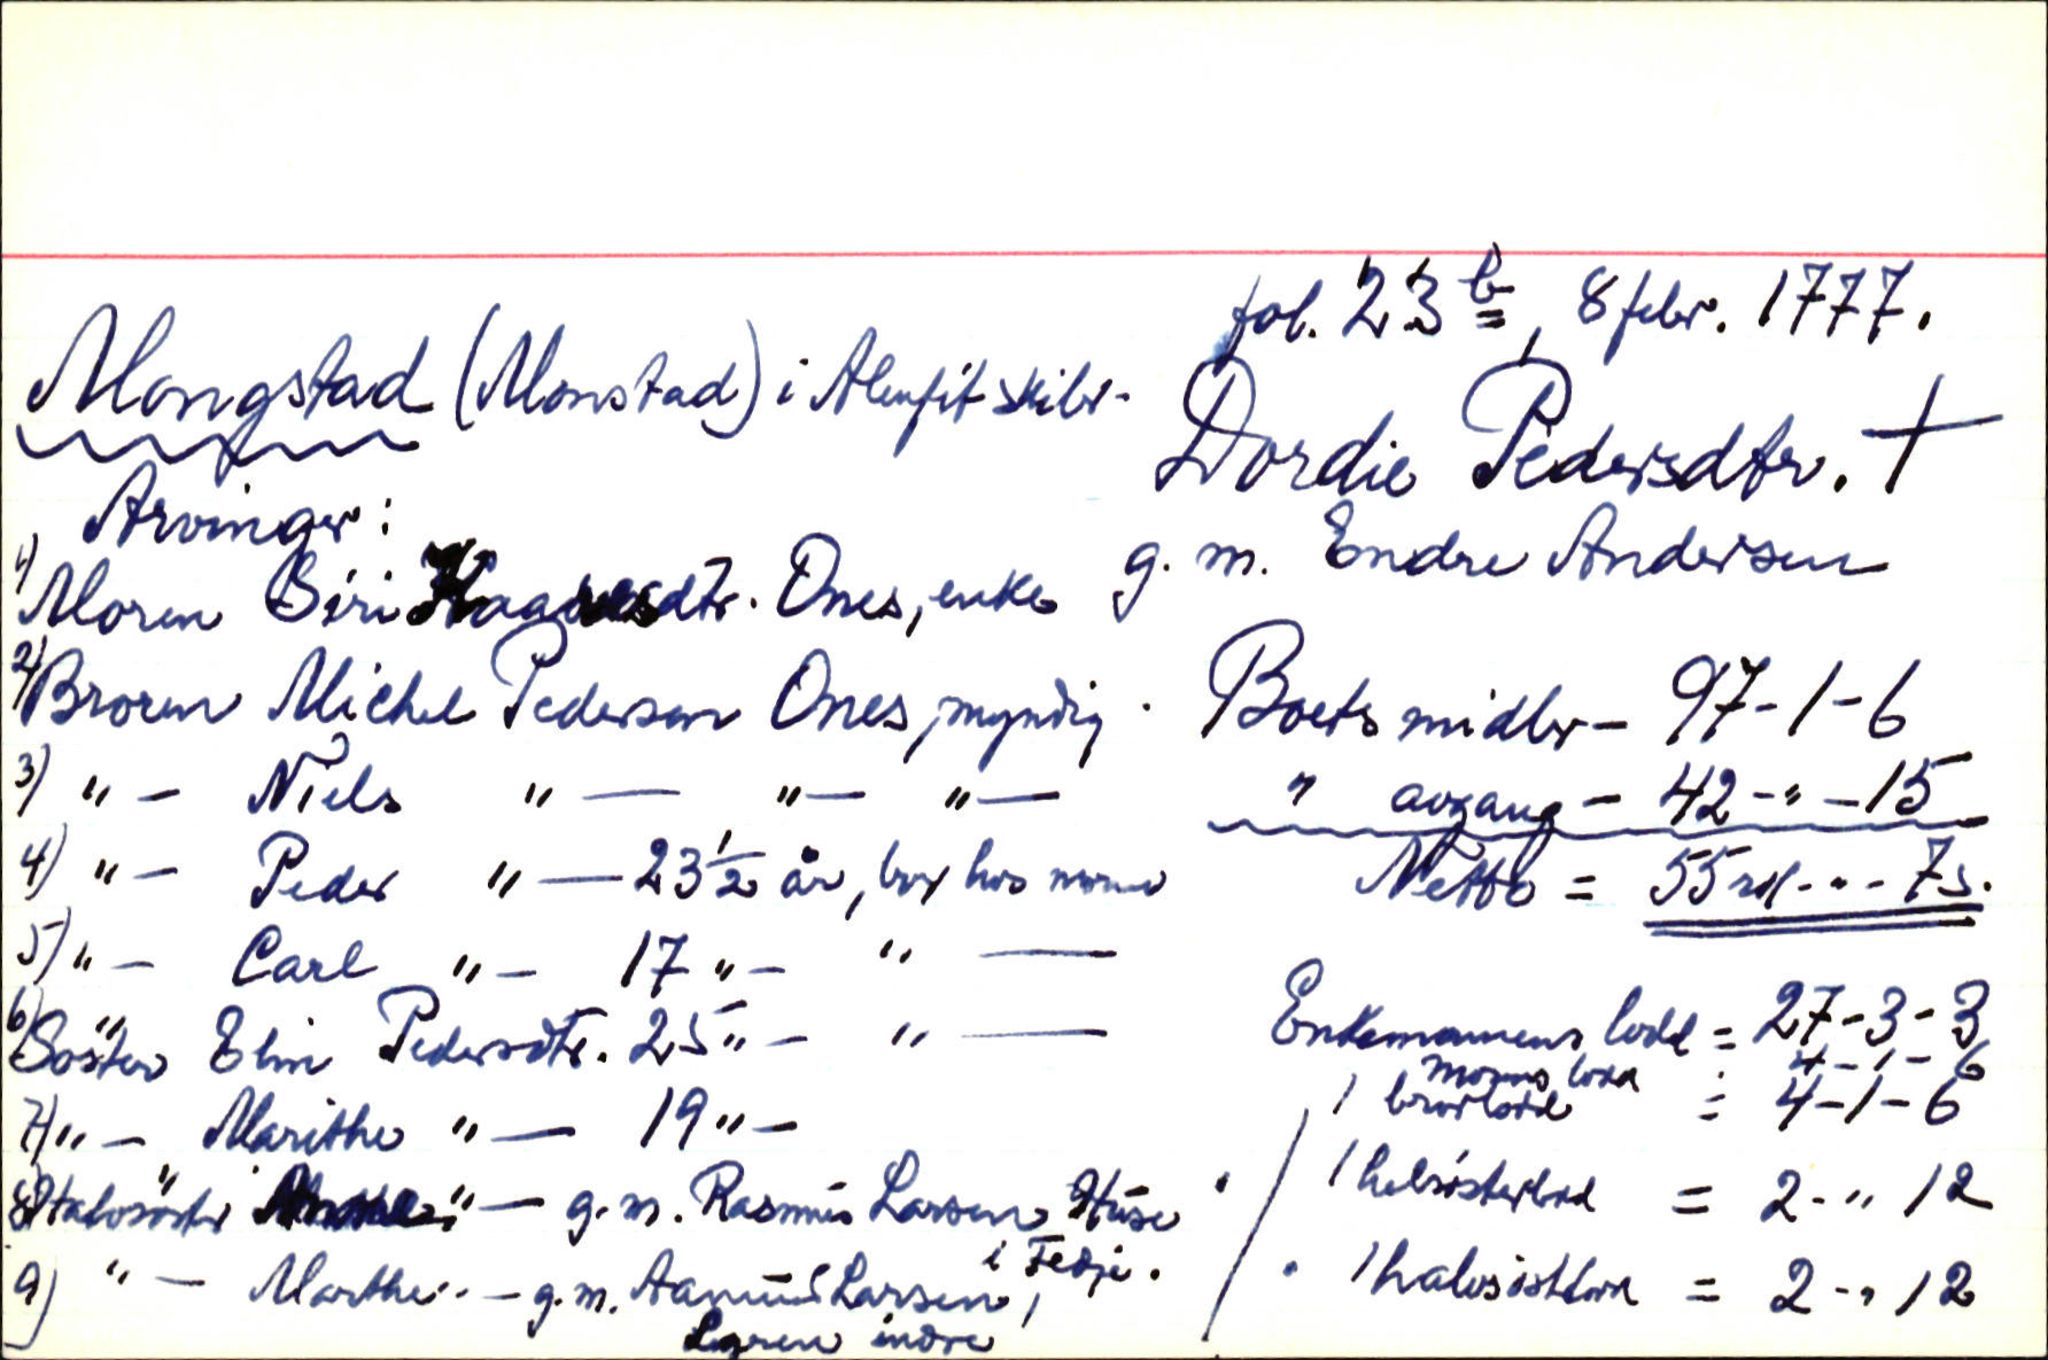 fol. 23 b, 8 febr. 1777.
Mongstad (Monstad) i Alenfit skibr.
Dordie Pedersdtr. †
g. m. Endre Andersen
Arvinger:
1) Moren Siri dtr. Ones, enke
2) Broren Michel Pedersen Ones, myndig.
3) " — Niels " — " — " —
4) " — Peder " — 23 1/2 år, bor hos moren
5) " — Carl " — 17 " — " —
6) Søster Elin Pedersdtr. 25 " — " —
7) " — Marithe " — 19 " —
8) Halvsøster " — g. m. Rasmus Larsen Huse
i Fedje.
9) " — Marthe " — g. m. Larsen,
indre
Boets midler — 97-1-6
" avgang — 42-"-15
Netto = 55 rd. - " - 7 s.
Enkemannens lodd = 27-3-3
morens lodd : 4-1-6
1 brorlodd = 4-1-6
1 helsøsterlod = 2-" 12
1 halvsøstlodd = 2-" 12